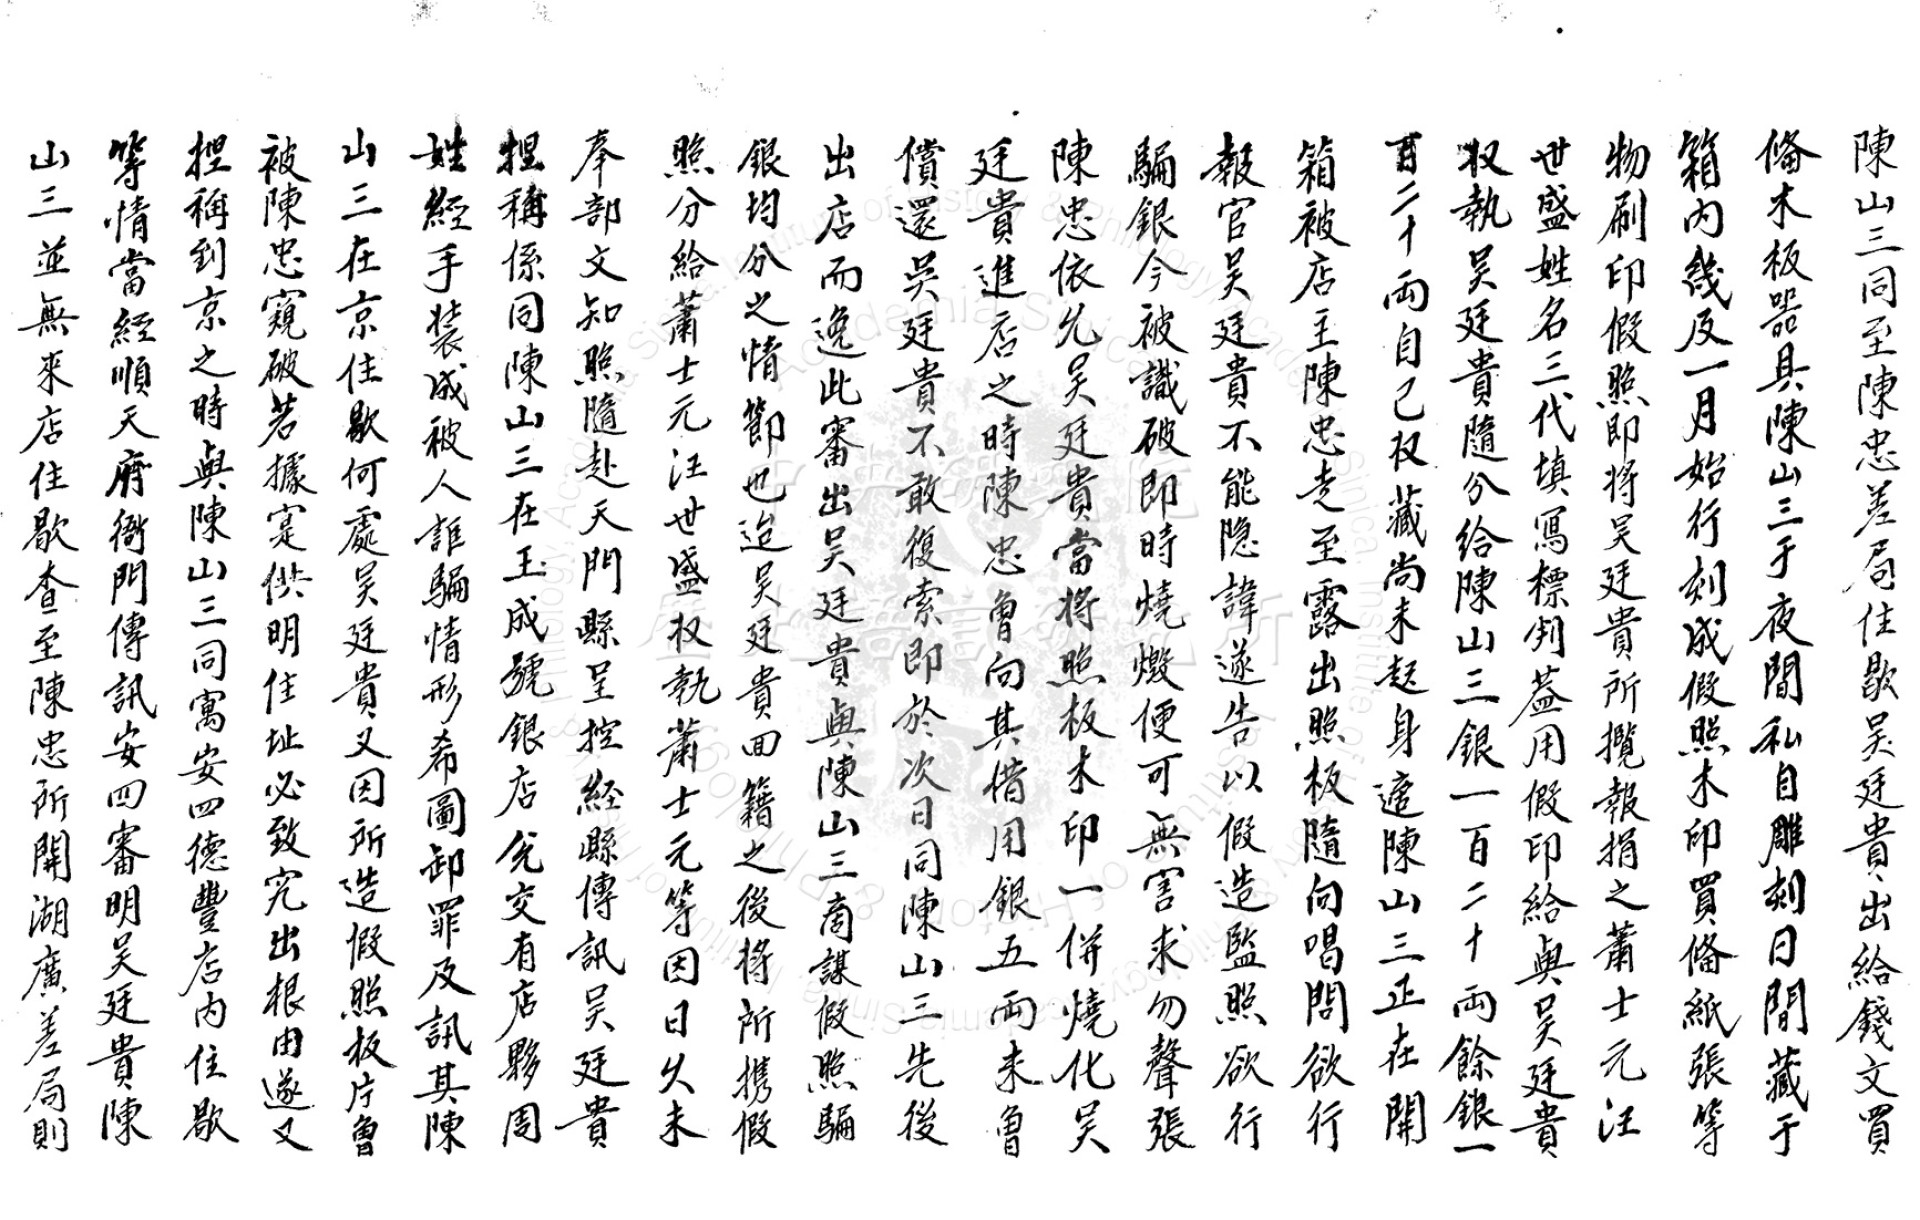 陳山三同至陳忠差局住歇吳廷貴出給錢文買
偹木板噐具陳山三于夜間私自雕刻日間藏于
箱内幾及一月始行刻成假照木印買偹紙張等
物刷印假照即將吳廷貴所攬報捐之蕭士元汪
世盛姓名三代填寫標判葢用假印給與吳廷貴
収執吴廷貴隨分給陳山三銀一百二十両餘銀一
百二十両自己収藏尚未起身適陳山三正在開
箱被店主陳忠走至露出照板隨向喝問欲行
報官吴廷貴不能隐諱遂告以假造監照欲行
騙銀今被識破即時燒燬便可無害求勿聲張
陳忠依允吴廷貴當將照板木印一併燒化吴
廷貴進店之時陳忠曾向其借用銀五両未曾
償還吳廷貴不敢復索即於次日同陳山三先後
出店而逸此審出吴廷貴與陳山三商謀假照騙
銀均分之情節也迨吴廷貴回籍之後將所携假
照分給蕭士元汪世盛収執蕭士元等因日久未
奉部文知照隨赴天門縣呈控經縣傳訊吴廷貴
捏稱係同陳山三在玉成號銀店兊交有店夥周
姓經手裝成被人誆騙情形希圖卸罪及訊其陳
山三在京住歇何處吴廷貴又因所造假照板片曾
被陳忠窺破若據寔供明住址必致究出根由遂又
捏稱到京之時與陳山三同寓安四德豐店内住歇
等情當經順天府衙門傳訊安四審明吴廷貴陳
山三並無來店住歇查至陳忠所開湖廣差局則
歷史語言研究所